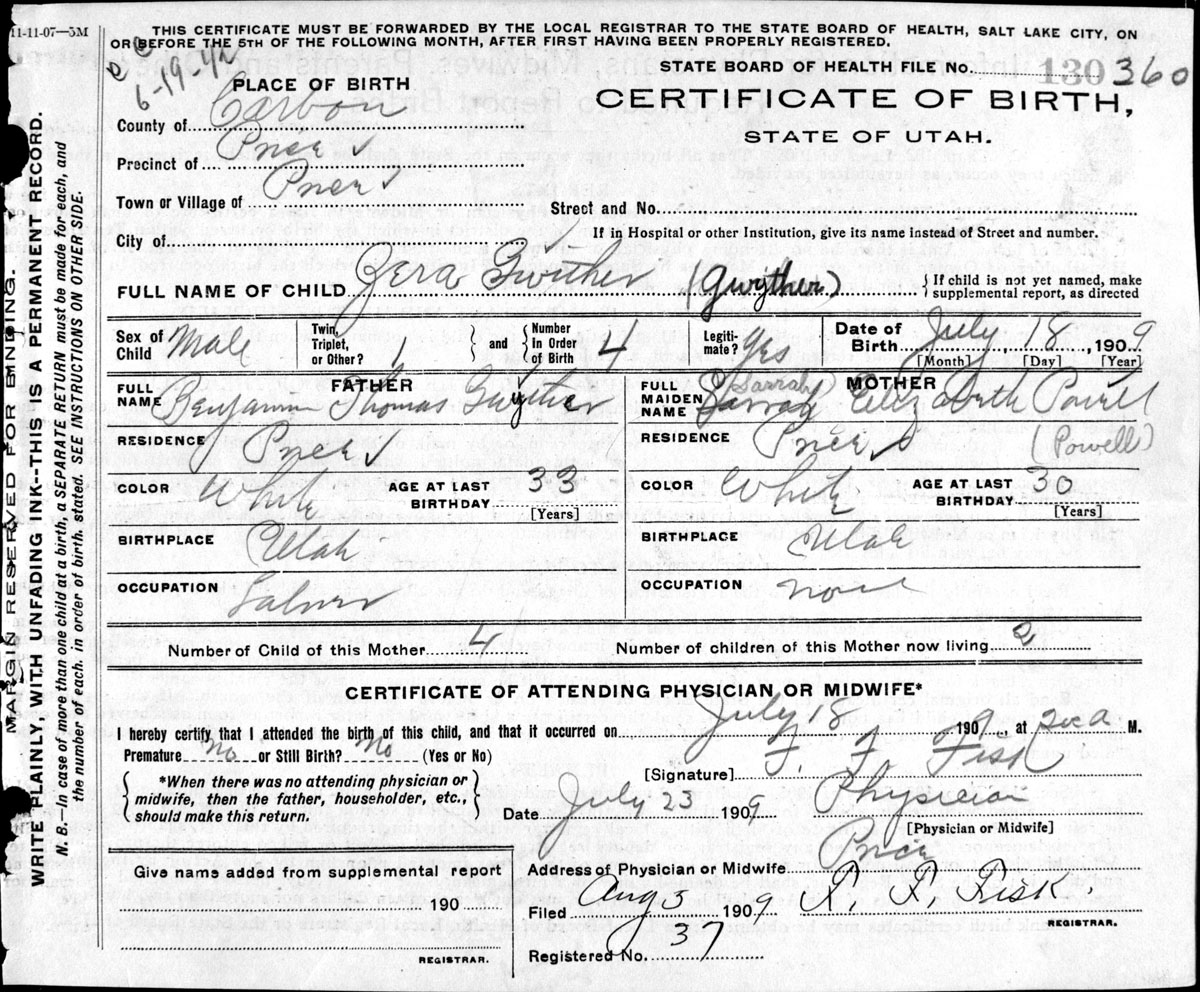 11-11-07—5M
THIS CERTIFICATE MUST BE FORWARDED BY THE LOCAL REGISTRAR TO THE STATE BOARD OF HEALTH, SALT LAKE CITY, ON
OR BEFORE THE 5TH OF THE FOLLOWING MONTH, AFTER FIRST HAVING BEEN PROPERLY REGISTERED.
6-19-42
STATE BOARD OF HEALTH FILE No. 130 360
PLACE OF BIRTH
CERTIFICATE OF BIRTH,
STATE OF UTAH.
County of Carbon
Precinct of Price
Town or Village of Price
Street and No.
If in Hospital or other Institution, give its name instead of Street and number.
City of
FULL NAME OF CHILD Zera Gwither (Gwyther) } If child is not yet named, make supplemental report, as directed
Sex of Child Male Twin, Triplet, or Other? 1 } and { Number In Order of Birth 4 Legitimate? yes Date of Birth July 18, 1909
[Month] [Day] [Year]
FATHER
FULL NAME Benjamin Thomas Gwyther
RESIDENCE Price
COLOR White AGE AT LAST BIRTHDAY 33
[Years]
BIRTHPLACE Utah
OCCUPATION Labor
MOTHER
FULL MAIDEN NAME Sarrah (Sarrah) Elizabeth Powel
(Powell)
RESIDENCE Price
COLOR White AGE AT LAST BIRTHDAY 30
[Years]
BIRTHPLACE Utah
OCCUPATION None
Number of Child of this Mother 4 Number of children of this Mother now living 2
CERTIFICATE OF ATTENDING PHYSICIAN OR MIDWIFE*
I hereby certify that I attended the birth of this child, and that it occurred on July 18 1909, at M.
Premature No or Still Birth? No (Yes or No)
[Signature] F. F. Fisk
{ *When there was no attending physician or midwife, then the father, householder, etc., should make this return. }
Date July 23 1909 Physician
[Physician or Midwife]
Address of Physician or Midwife Price
Give name added from supplemental report
190
REGISTRAR.
Filed Aug 3 1909 F. F. Fisk.
REGISTRAR.
Registered No. 37
MARGIN RESERVED FOR BINDING.
WRITE PLAINLY, WITH UNFADING INK--THIS IS A PERMANENT RECORD.
N. B.—In case of more than one child at a birth, a SEPARATE RETURN must be made for each, and
the number of each. in order of birth. stated. SEE INSTRUCTIONS ON OTHER SIDE.